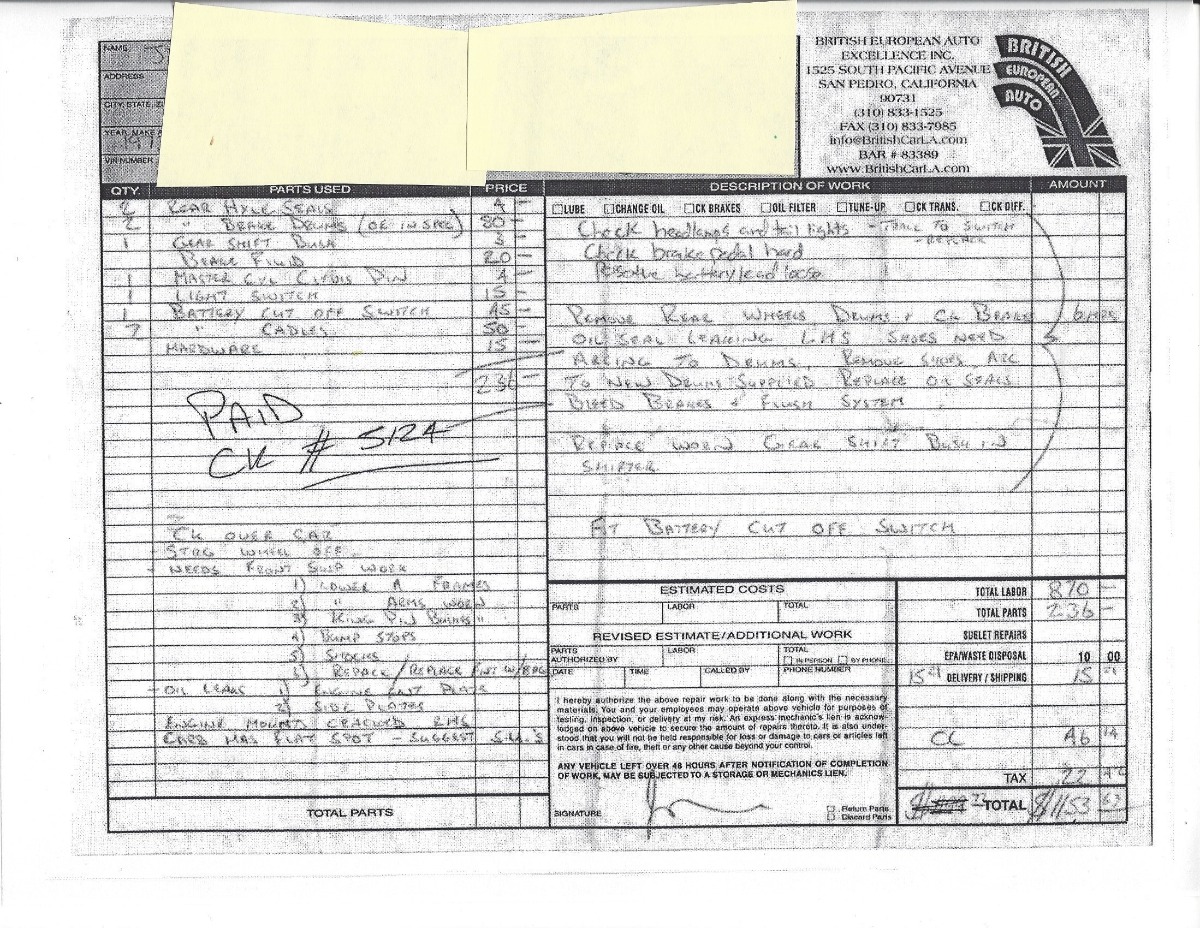 NAME
ADDRESS
CITY, STATE, Z
YEAR, MAKE
197
VIN NUMBER
BRITISH EUROPEAN AUTO
EXCELLENCE INC.
1525 SOUTH PACIFIC AVENUE
SAN PEDRO, CALIFORNIA
90731
(310) 833-1525
FAX (310) 833-7985
info@BritishCarLA.com
BAR # 83389
www.BritishCarLA.com
BRITISH
EUROPEAN
AUTO
QTY. PARTS USED PRICE
2 REAR HYLE SEALS 4 -
2 " BRAKE DRUMS (OE IN SPEC) 80 -
1 GEAR SHIFT BUSH 3 -
BRAKE FLUID 20 -
1 MASTER CYL CLEVIS PIN 4 -
1 LIGHT SWITCH 15 -
1 BATTERY CUT OFF SWITCH 45 -
2 " CABLES 50 -
HARDWARE 15 -
236 -
PAID
CK # 5124
CK OVER CAR
- STRG WHEEL OFF
- NEEDS FRONT SUSP WORK
1) LOWER A FRAMES
2) " ARMS WORN
3) KING PIN BUSHES "
4) BUMP STOPS
5) SHOCKS
REPACK / REPLACE FRNT W/BRG
- OIL LEAKS 1) ENGINE FRNT PLATE
2) SIDE PLATES
ENGINE MOUNT CRACKED RHS
CARB HAS FLAT SPOT - SUGGEST S.U.'S
TOTAL PARTS
DESCRIPTION OF WORK AMOUNT
LUBE CHANGE OIL CK BRAKES OIL FILTER TUNE-UP CK TRANS. CK DIFF.
Check headlamps and tail lights - TRACE TO SWITCH
- REPLACE
Check brake pedal hard
Resolve battery lead loose
REMOVE REAR WHEELS DRUMS & CK BRAKE 6 HRS
OIL SEAL LEAKING LHS SHOES NEED
ARCING TO DRUMS. REMOVE SHOES, ARC
TO NEW DRUMS SUPPLIED. REPLACE OIL SEALS
BLEED BRAKES & FLUSH SYSTEM
REPLACE WORN GEAR SHIFT BUSH IN
SHIFTER.
FIT BATTERY CUT OFF SWITCH
ESTIMATED COSTS
PARTS LABOR TOTAL
REVISED ESTIMATE/ADDITIONAL WORK
PARTS LABOR TOTAL
AUTHORIZED BY IN PERSON BY PHONE
DATE TIME CALLED BY PHONE NUMBER
I hereby authorize the above repair work to be done along with the necessary
materials. You and your employees may operate above vehicle for purposes of
testing, inspection, or delivery at my risk. An express mechanic's lien is acknow-
lodged on above vehicle to secure the amount of repairs thereto. It is also under-
stood that you will not be held responsible for loss or damage to cars or articles left
in cars in case of fire, theft or any other cause beyond your control.
ANY VEHICLE LEFT OVER 48 HOURS AFTER NOTIFICATION OF COMPLETION
OF WORK, MAY BE SUBJECTED TO A STORAGE OR MECHANICS LIEN.
SIGNATURE
Return Parts
Discard Parts
TOTAL LABOR 870 -
TOTAL PARTS 236 -
SUBLET REPAIRS
EPA/WASTE DISPOSAL 10 00
DELIVERY / SHIPPING 15
TAX 22 42
TOTAL $1153